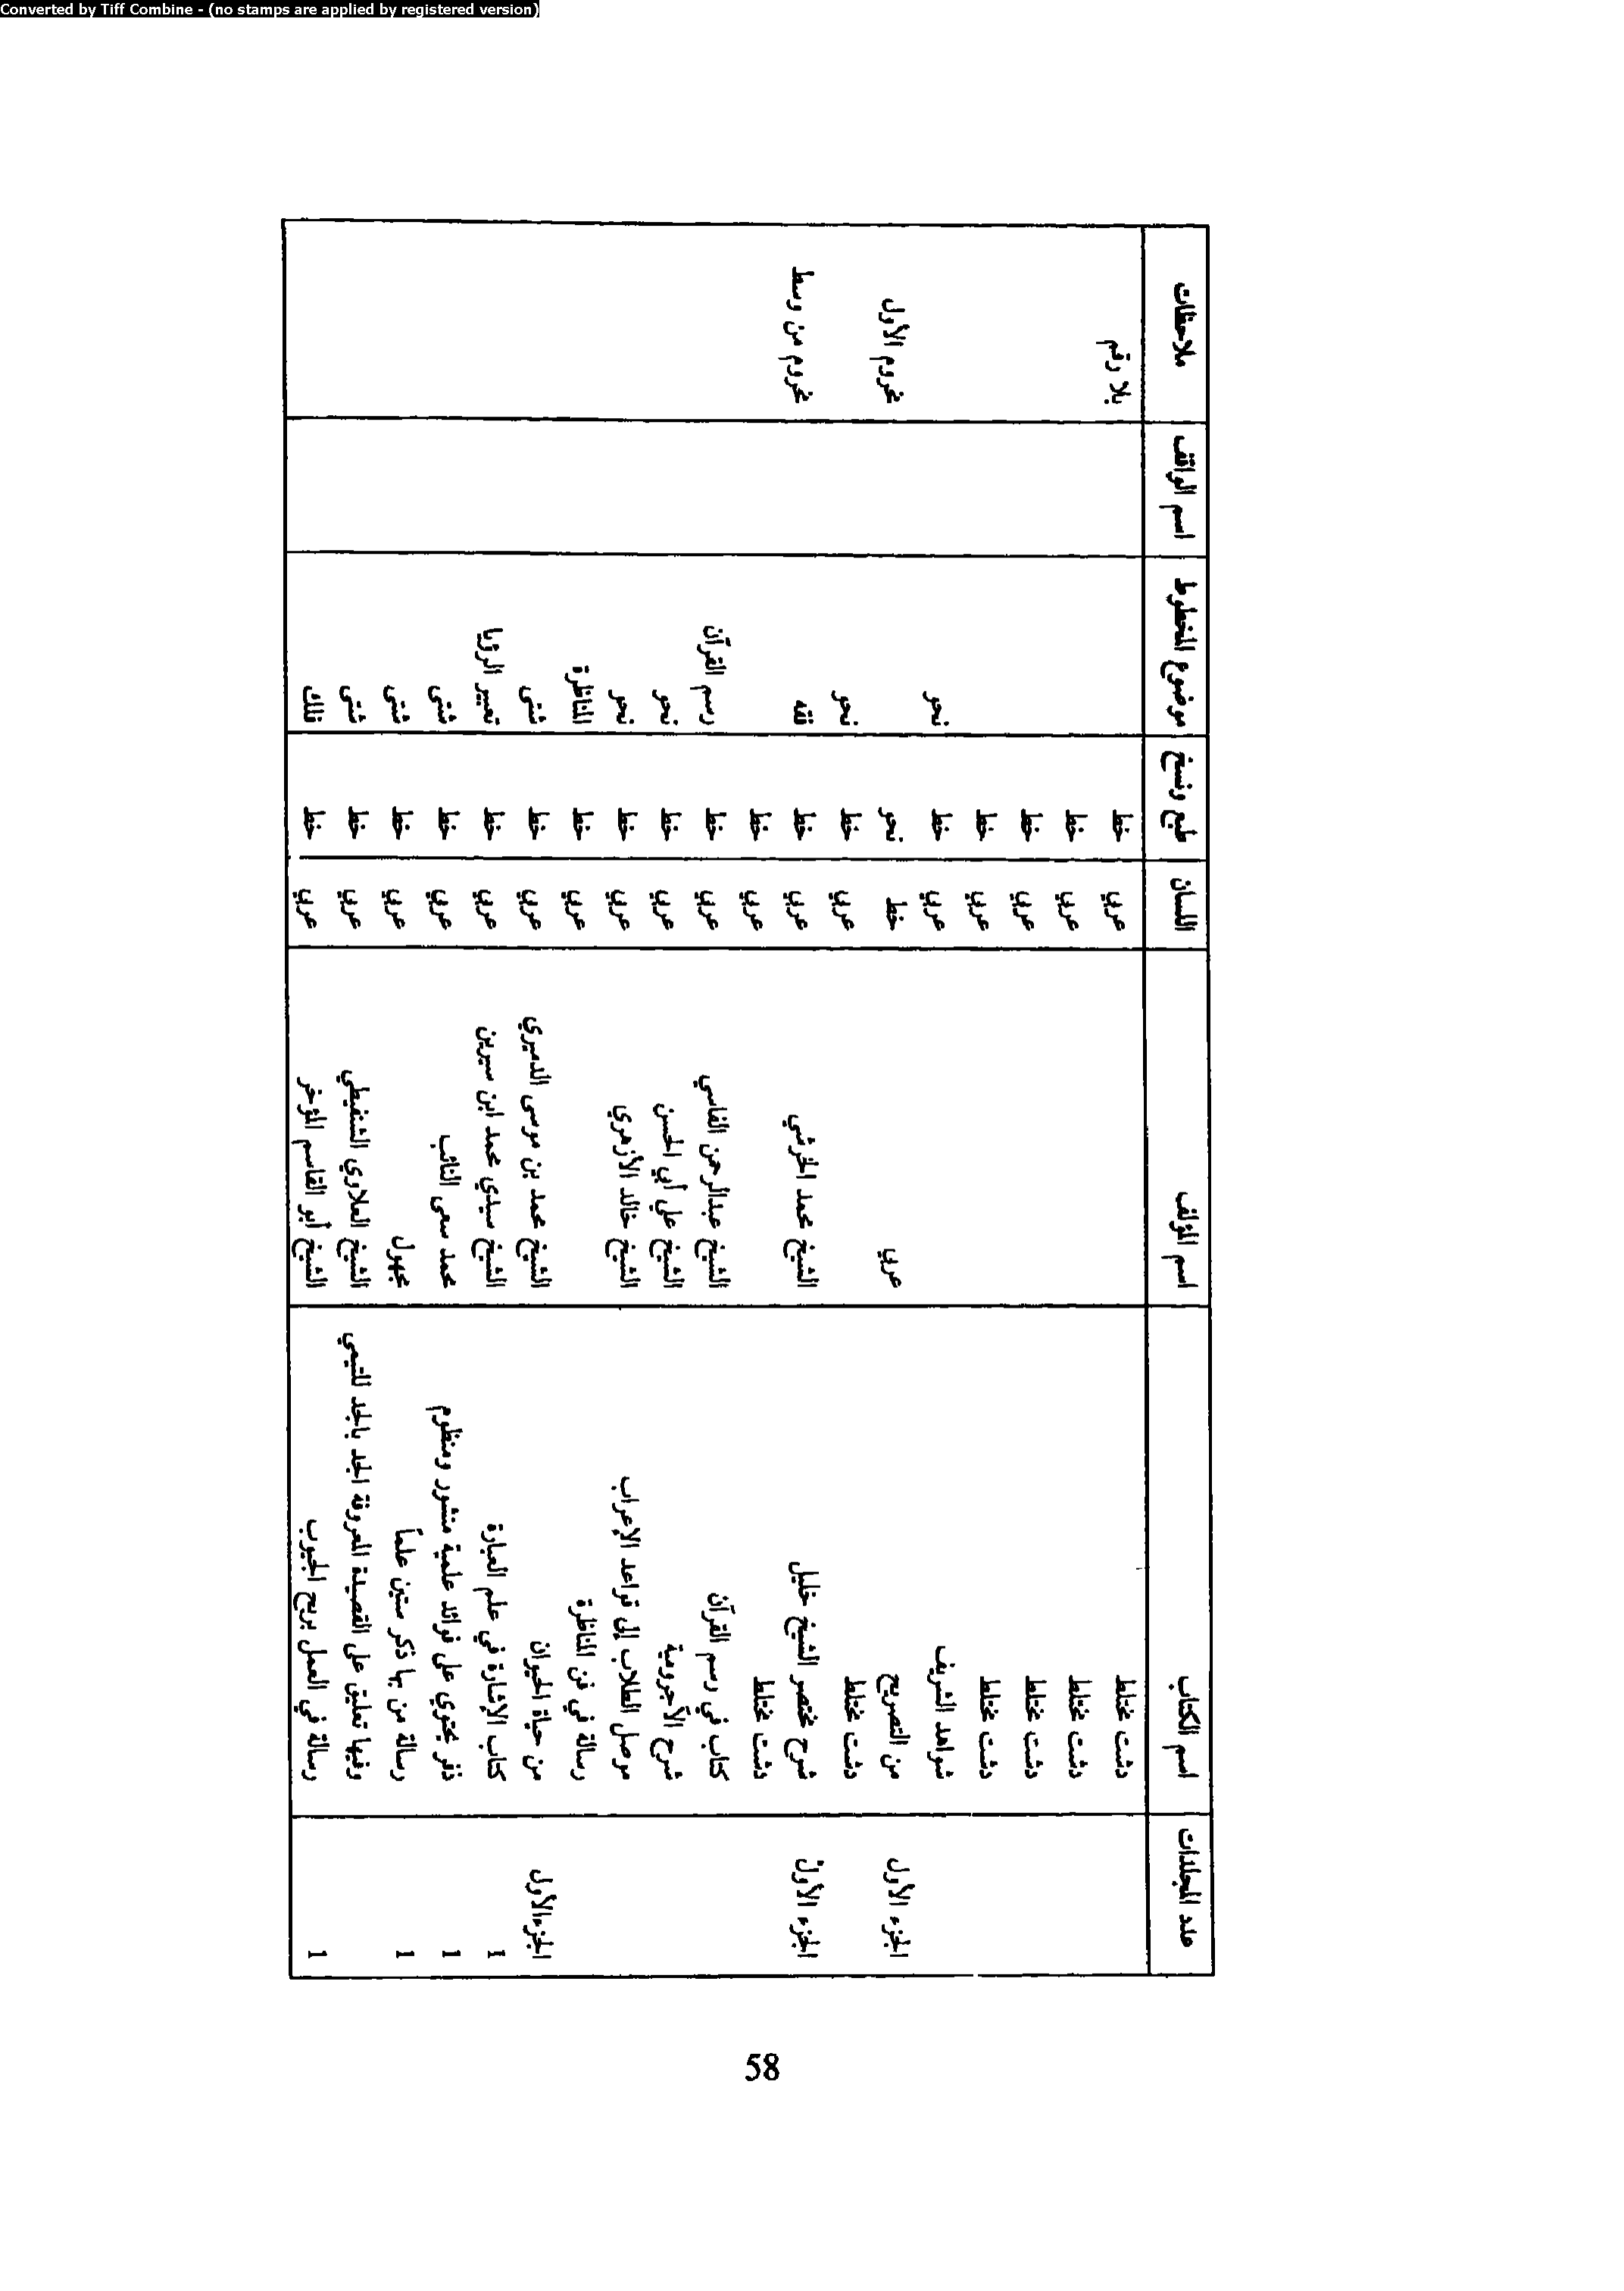 Converted by Tiff Combine - (no stamps are applied by registered version)
عدد المجلدات اسم الكتاب اسم المؤلف اللسان طبع ونسخ موضوع المخطوط اسم الواقف ملاحظات
دشت مختلط عربي خط بلا رقم
دشت مختلط عربي خط
دشت مختلط عربي خط
دشت مختلط عربي خط
شواهد الشريف عربي خط نحو
الجزء الأول من التصريح عربي خط نحو مخروم الأول
دشت مختلط عربي خط نحو
الجزء الأول شرح مختصر الشيخ خليل الشيخ محمد الخرشي عربي خط فقه مخروم من وسط
دشت مختلط عربي خط
كتاب في رسم القرآن الشيخ عبدالرحمن الفاسي عربي خط رسم القرآن
شرح الأجرومية الشيخ علي أبي الحسن عربي خط نحو
موصل الطلاب إلى قواعد الإعراب الشيخ خالد الأزهري عربي خط نحو
رسالة في فن المناظرة عربي خط المناظرة
الجزءالأول من حياة الحيوان الشيخ محمد بن موسى الدميري عربي خط شتى
1 كتاب الإشارة في علم العبارة الشيخ سيدي محمد ابن سيرين عربي خط تعبير الرؤيا
1 دفر يحتوي على فوائد علمية منثور ومنظوم محمد سعى النائب عربي خط شتى
1 رسالة من بها ذكر ستين علماً مجهول عربي خط شتى
وفيها تعليق على القصيدة المعروفة الجد بالجد للتيمي الشيخ العلاوي الشنقيطي عربي خط شتى
1 رسالة في العمل بربح الجيوب الشيخ أبو القاسم المؤخر عربي خط فلك
58